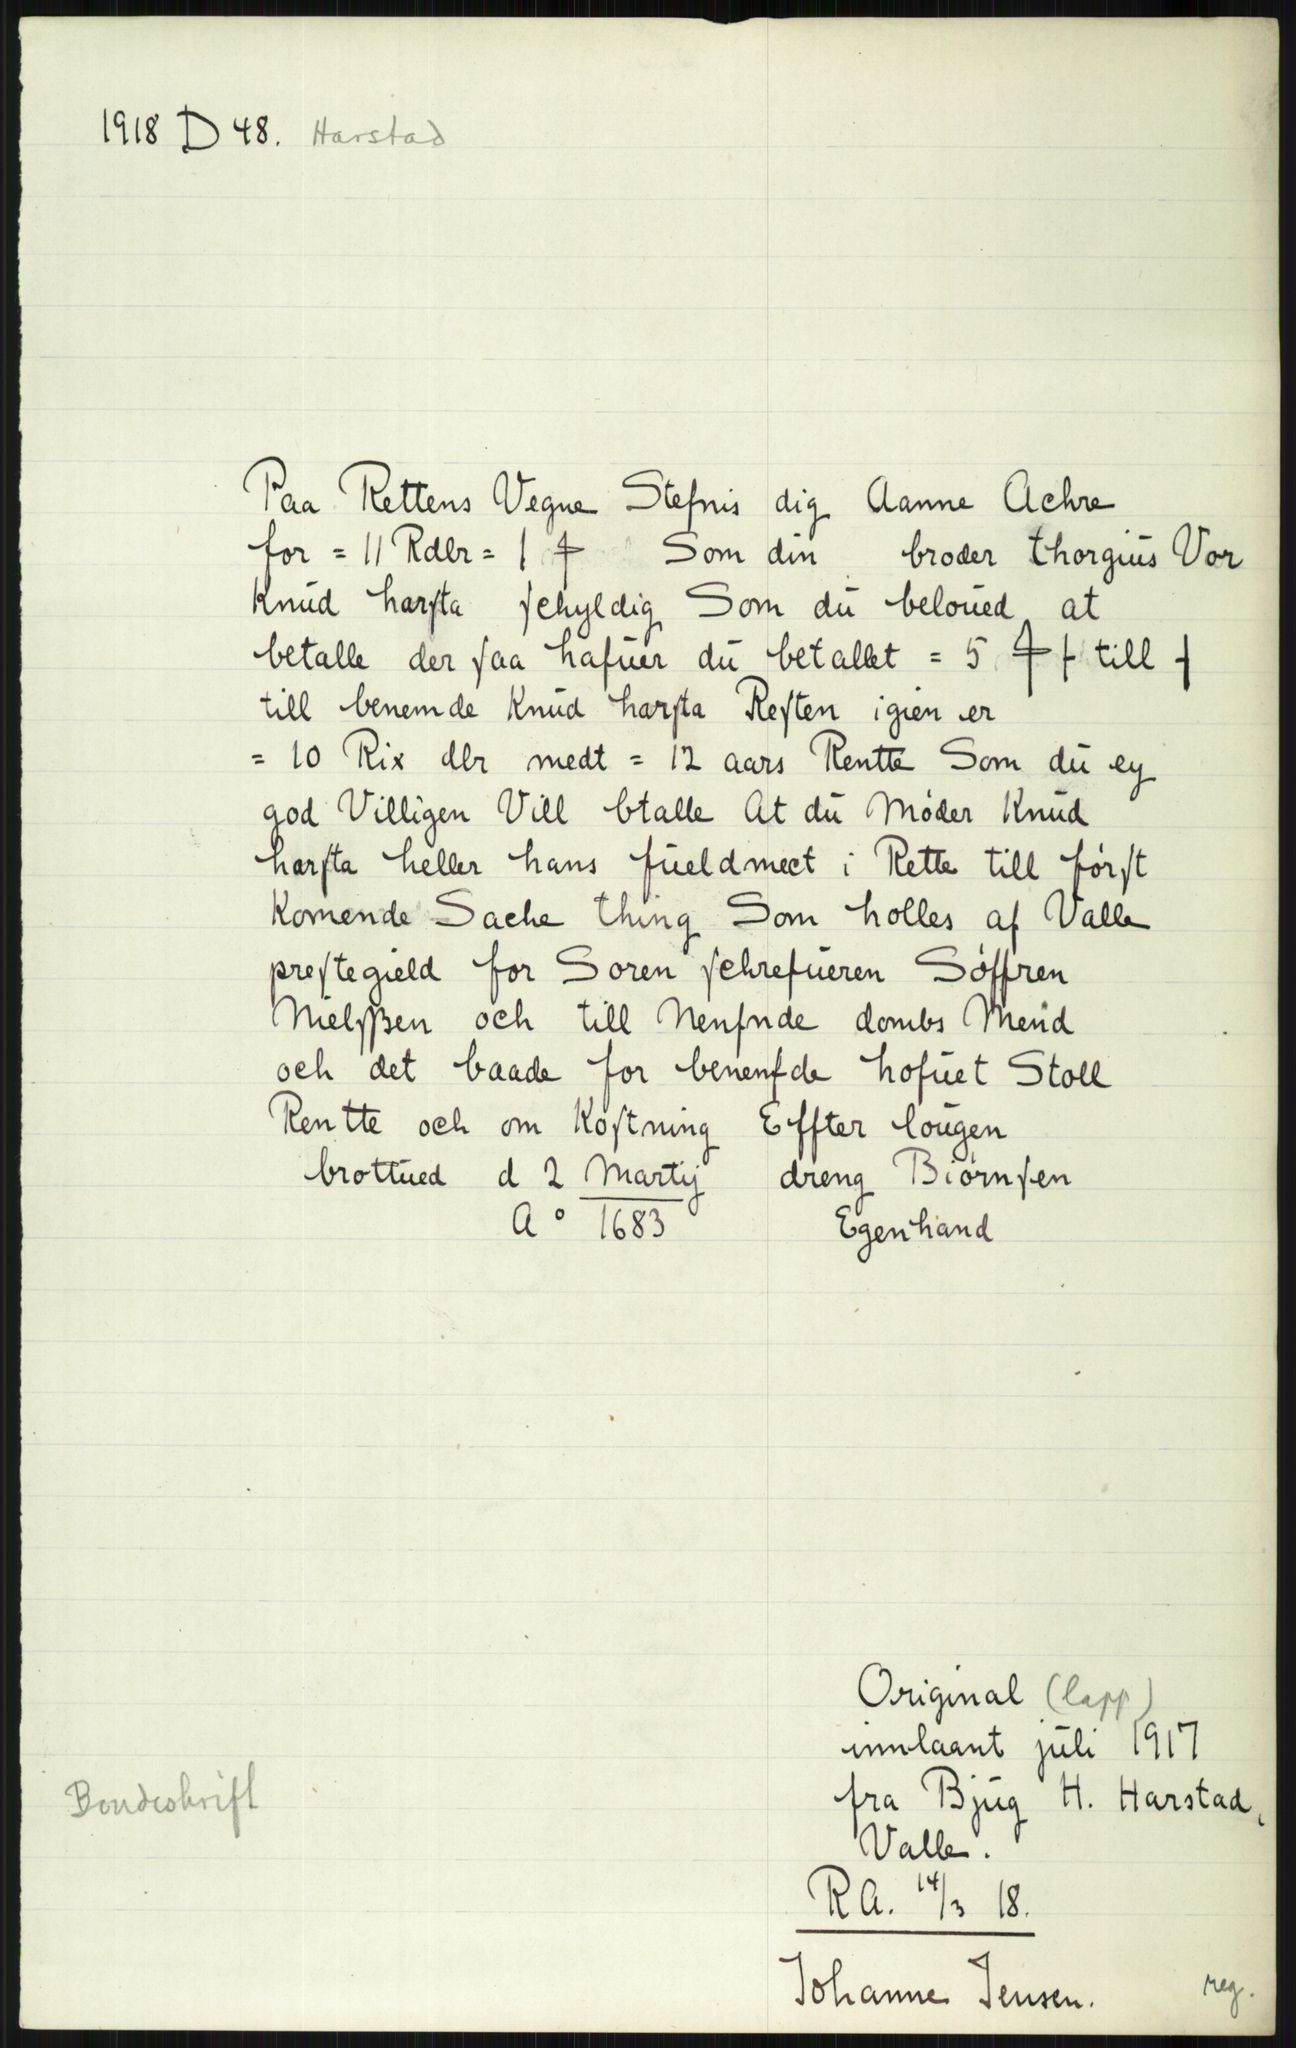 1918 D 48. Harstad
Paa Rettens Vegne Stefnis dig Aanne Achre
for = 11 Rdlr = 1 ⸸ Som din broder thorgius Vor
Knud harsta schyldig Som du beloued at
betalle der saa hafuer du betallet = 5 ⸸ ⸠ till ⸡
till benemde Knud harsta Resten igien er
= 10 Rix dlr medt = 12 aars Rentte Som du ey
god Villigen Vill btalle At du Møder Knud
harsta heller hans fueldmect i Rette till først
Komende Sache thing Som holles af Valle
prestegield for Soren schrefueren Søffren
Nielsßen och till Nenfnde dombs Mend
och det baade for benenfde hofuet Stoll
Rentte och om Kostning Effter lougen
brottued d 2 Martij dreng Biørnsen
A° 1683 Egenhand
Original (lapp)
innlaant juli 1917
fra Bjug H. Harstad,
Valle.
Bondeskrift
RA. 14/3 18.
Johanne Jensen.
reg.